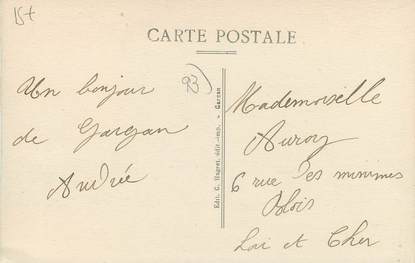 15+
CARTE POSTALE
93
Un bonjour
de Gargan
Andrée
Edit. C. Hugret, édit.-imp. - Gargan
Mademoiselle
Auroy
6 rue des minimes
Blois
Loi et Cher